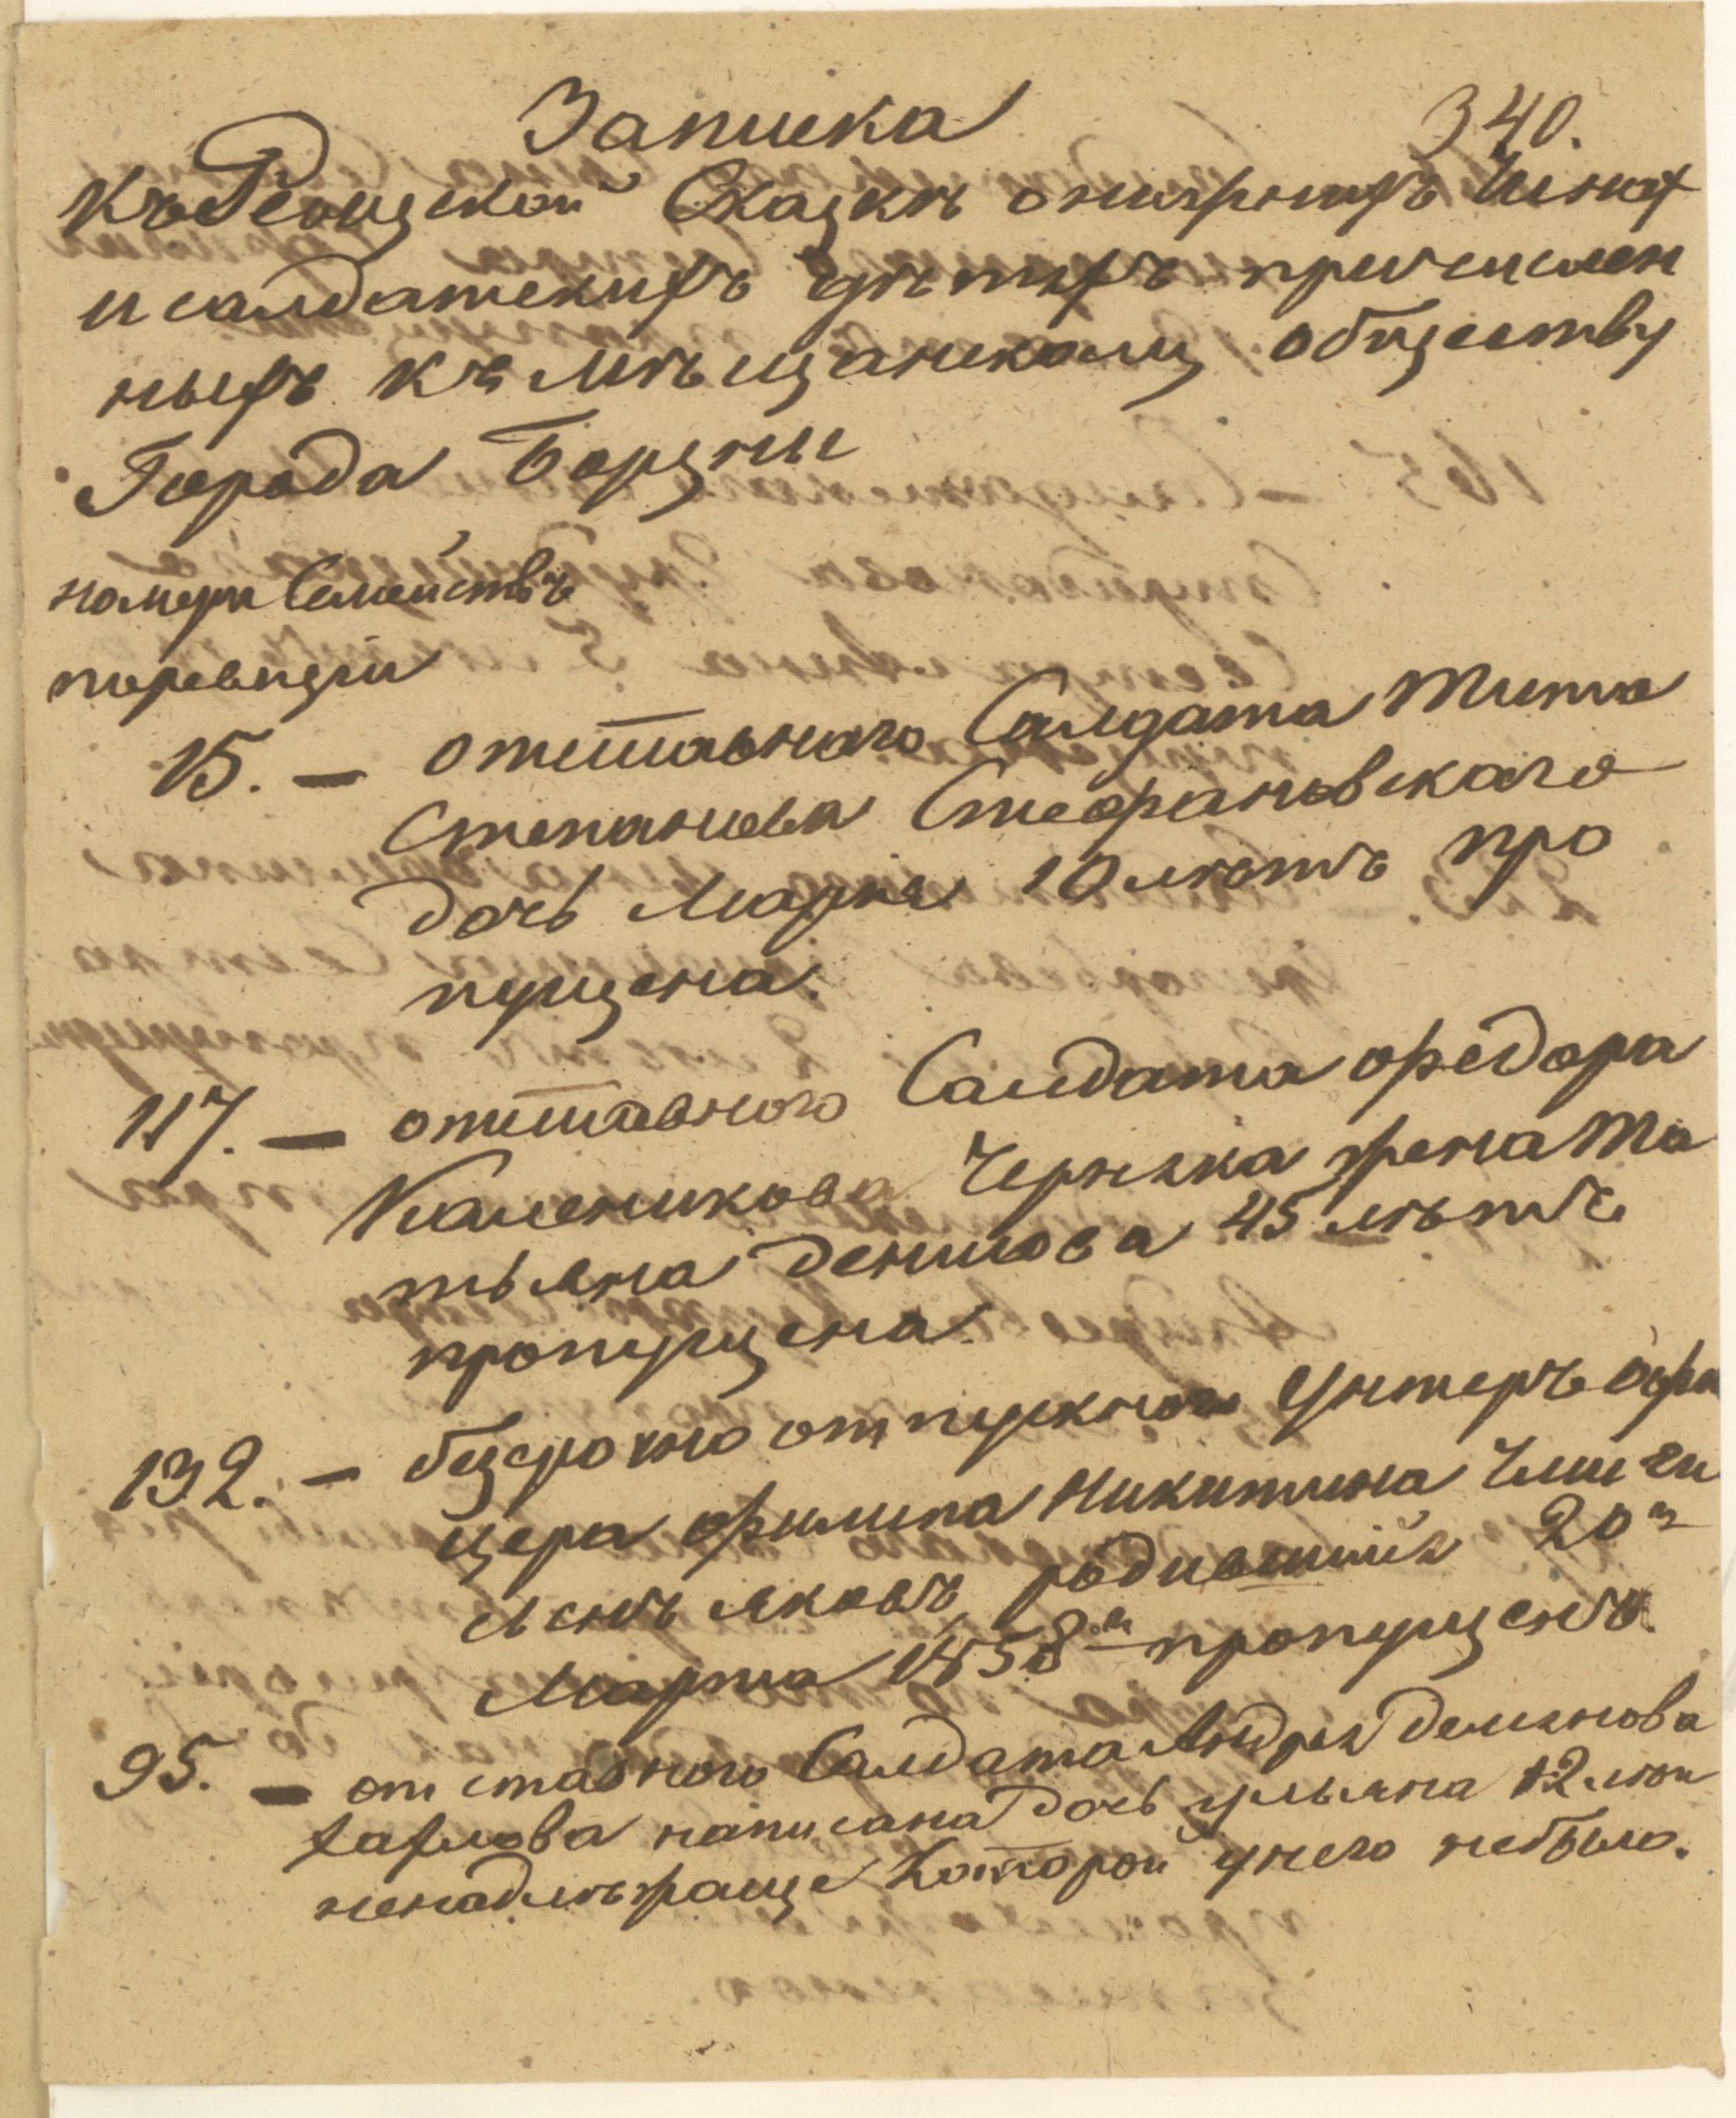 Записка
340.
Къ Ревизской Сказкѣ о нижнихъ Чинах
и салдатскихъ дѣтяхъ причислен
ныхъ къ мѣщанскому обществу
Города Борзны
номери Семействъ
поревизіи
15. — отставнаго Салдата Тита
Степанова Стефановскаго
дочь Марья 10 лѣтъ про
пущена.
117. — отставного Салдата Федора
Каленикова Черняка жена Та
тьяна Денисова 45 лѣтъ
пропущена.
132. — безсрочно отпускного Унтеръ офи
цера Филипа Никитина
сынъ яковъ родившийся 20го
Марта 1858го пропущенъ.
95. — отставного Салдата Андрея Демянова
написана дочь ульяна 12 лѣт
ненадлѣжаще Которой унего небыло.